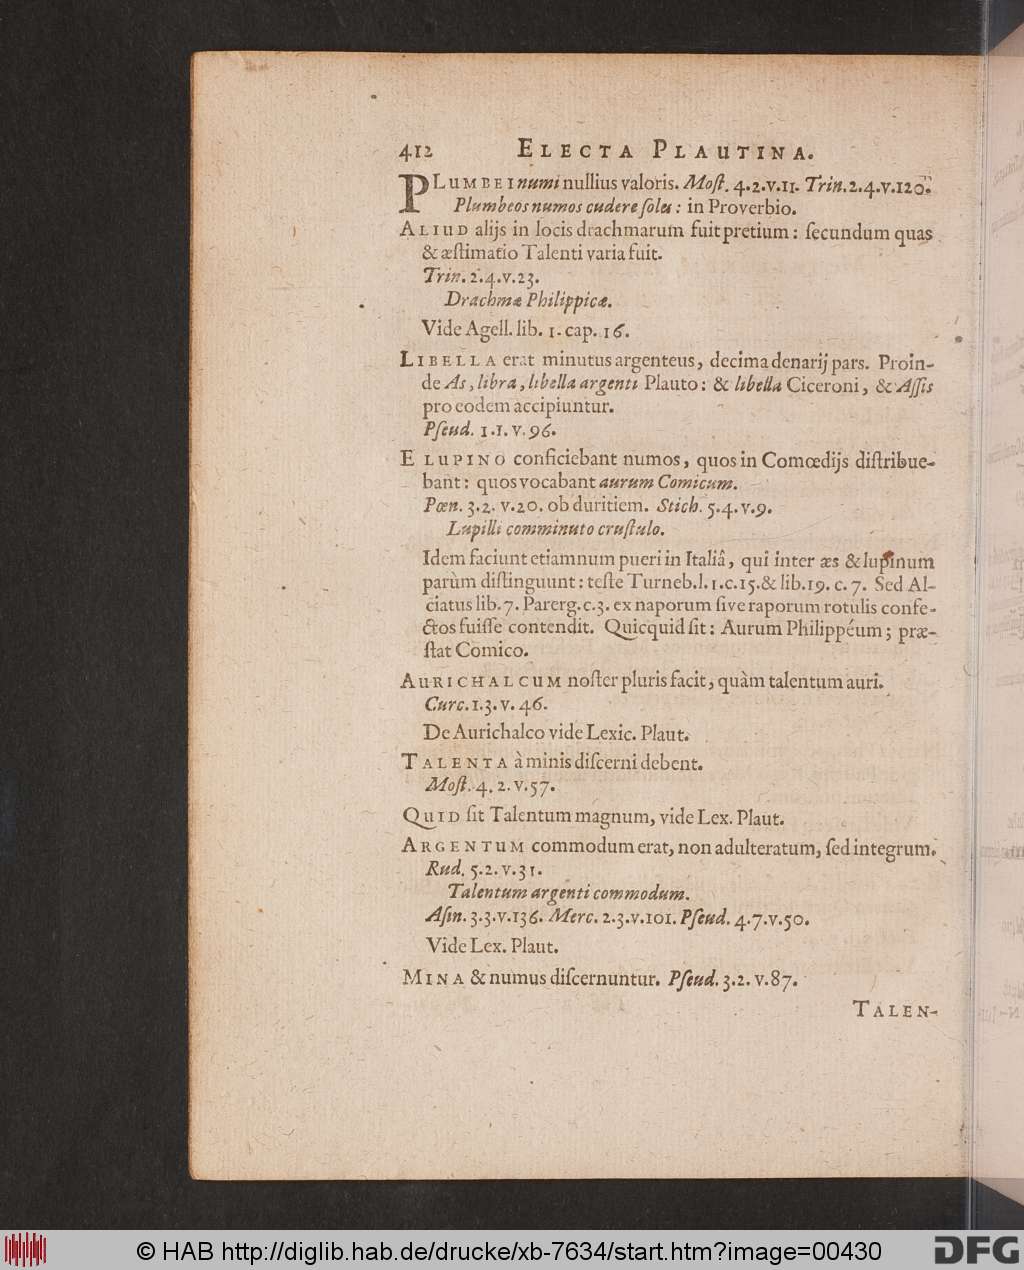 412 ELECTA PLAUTINA.
PLUMBEI numi nullius valoris. Moſt. 4.2.v.11. Trin.2.4.v.120.
Plumbeos numos cudere ſoles: in Proverbio.
ALIUD alijs in locis drachmarum fuit pretium: ſecundum quas
& æſtimatio Talenti varia fuit.
Trin. 2.4.v.23.
Drachmæ Philippicæ.
Vide Agell. lib. 1. cap. 16.
LIBELLA erat minutus argenteus, decima denarij pars. Proin-
de As, libra, libella argenti Plauto: & libella Ciceroni, & Aſſis
pro eodem accipiuntur.
Pſeud. 1.1.v.96.
E LUPINO conficiebant numos, quos in Comœdijs diſtribue-
bant: quos vocabant aurum Comicum.
Pœn. 3.2. v.20. ob duritiem. Stich. 5.4.v.9.
Lupilli comminuto cruſtulo.
Idem faciunt etiamnum pueri in Italiâ, qui inter æs & lupinum
parùm diſtinguunt: teſte Turneb.l.1.c.15.& lib.19. c. 7. Sed Al-
ciatus lib. 7. Parerg.c.3. ex naporum ſive raporum rotulis confe-
ctos fuiſſe contendit. Quicquid ſit: Aurum Philippéum; præ-
ſtat Comico.
AURICHALCUM noſter pluris facit, quàm talentum auri.
Curc.1.3.v.46.
De Aurichalco vide Lexic. Plaut.
TALENTA à minis diſcerni debent.
Moſt. 4. 2. v.57.
QUID ſit Talentum magnum, vide Lex. Plaut.
ARGENTUM commodum erat, non adulteratum, ſed integrum.
Rud. 5.2.v.31.
Talentum argenti commodum.
Aſin. 3.3.v.136. Merc. 2.3.v.101. Pſeud. 4.7.v.50.
Vide Lex. Plaut.
MINA & numus diſcernuntur. Pſeud. 3.2. v.87.
TALEN-
© HAB http://diglib.hab.de/drucke/xb-7634/start.htm?image=00430
DFG